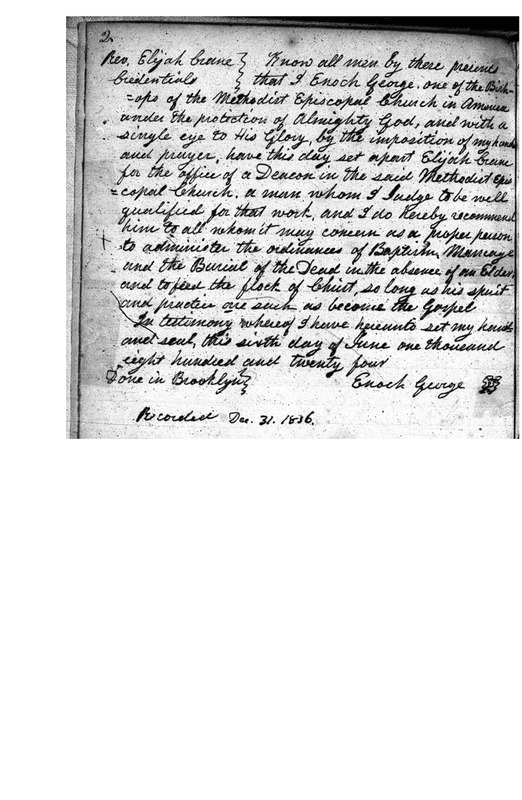 2
Rev. Elijah Crane } Know all men by these presents
Credentials } that I Enoch George, one of the Bish-
=ops of the Methodist Episcopal Church in America
under the protection of Almighty God, and with a
single eye to His Glory, by the imposition of my hands
and prayer, have this day set apart Elijah Crane
for the office of a Deacon in the said Methodist Epis
=copal Church, a man whom I Judge to be well
qualified for that work, and I do hereby recommend
him to all whom it may concern as a proper person
to administer the ordinances of Baptism, Marriage
and the Burial of the Dead in the absence of an Elder,
and to feed the flock of Christ, so long as his spirit
and practice are such as become the Gospel
In testimony whereof I have hereunto set my hand
and seal, this sixth day of June one thousand
eight hundred and twenty four
Done in Brooklyn } Enoch George
Recorded Dec. 31. 1836.